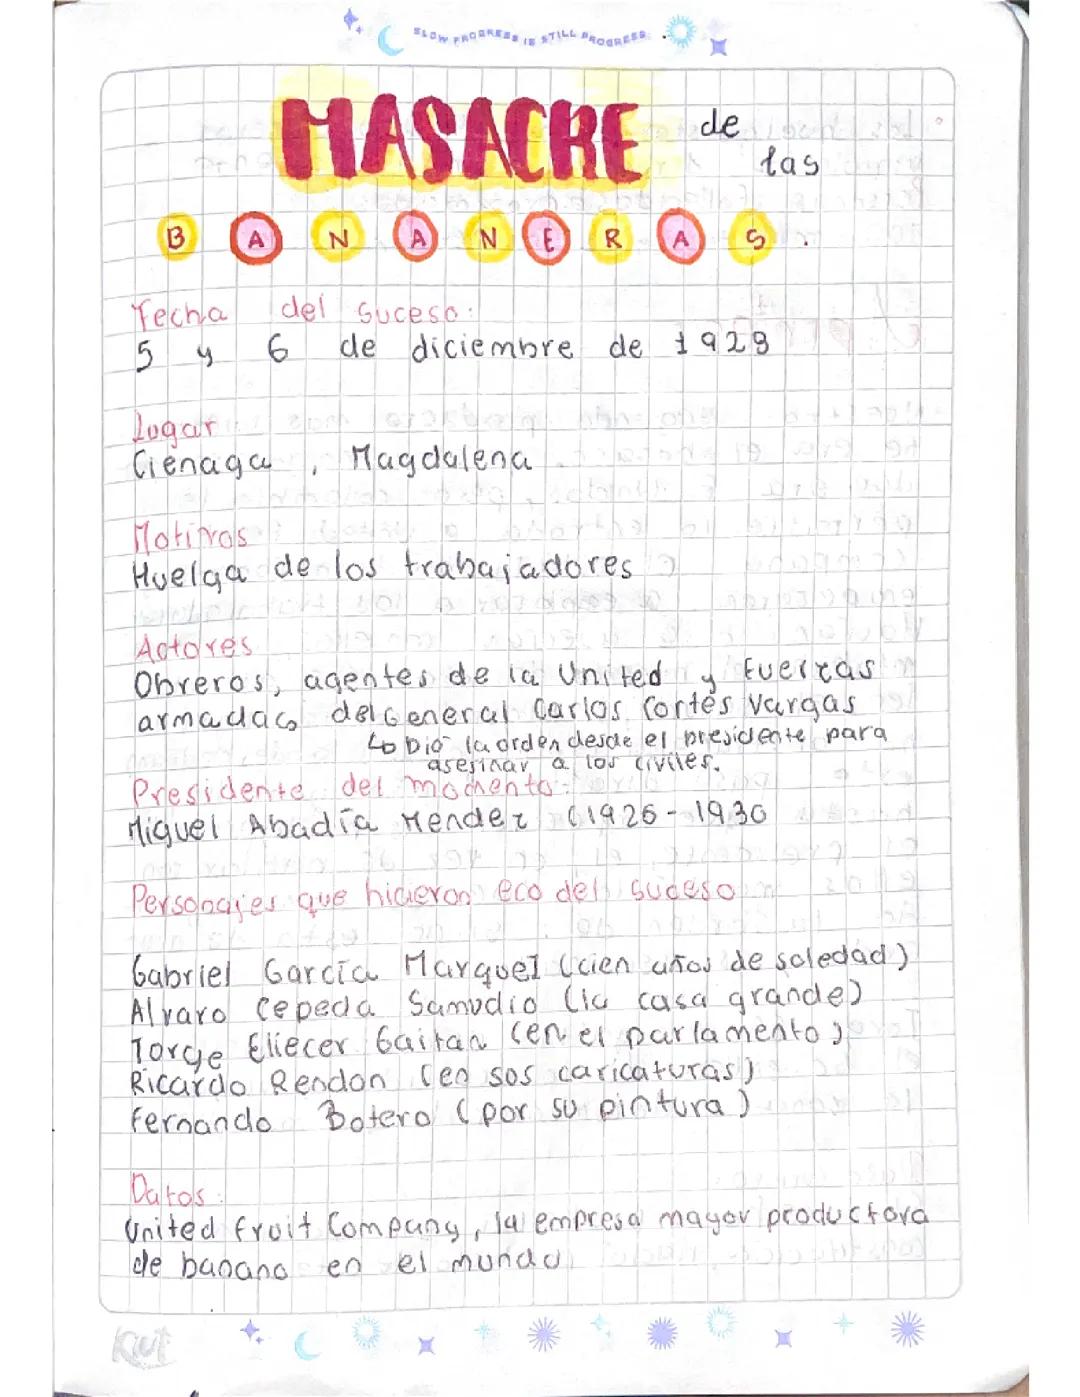 SLOW PROGRESS IS STILL PROGRESS.
MASACRE de
las
BANANERAS.
Fecha del suceso:
5 y 6 de diciembre de 1928
Lugar
Cienaga, Magdalena
Motivos
Huelga de los trabajadores
Actores
Obreros, agentes de la United y Fuerzas
armadas del General Carlos Cortés Vargas
↳ Dió la orden desde el presidente para
asesinar a los civiles.
Presidente del momento:
Miguel Abadía Mendez (1926-1930
Personajes que hicieron eco del suceso
Gabriel García Marquez (cien años de soledad)
Alvaro Cepeda Samudio (la casa grande)
Jorge Eliecer Gaitan (en el parlamento)
Ricardo Rendon (en sos caricaturas)
Fernando Botero (por su pintura)
Datos:
United Fruit Company, la empresa mayor productora
de banano en el mundo
Kut